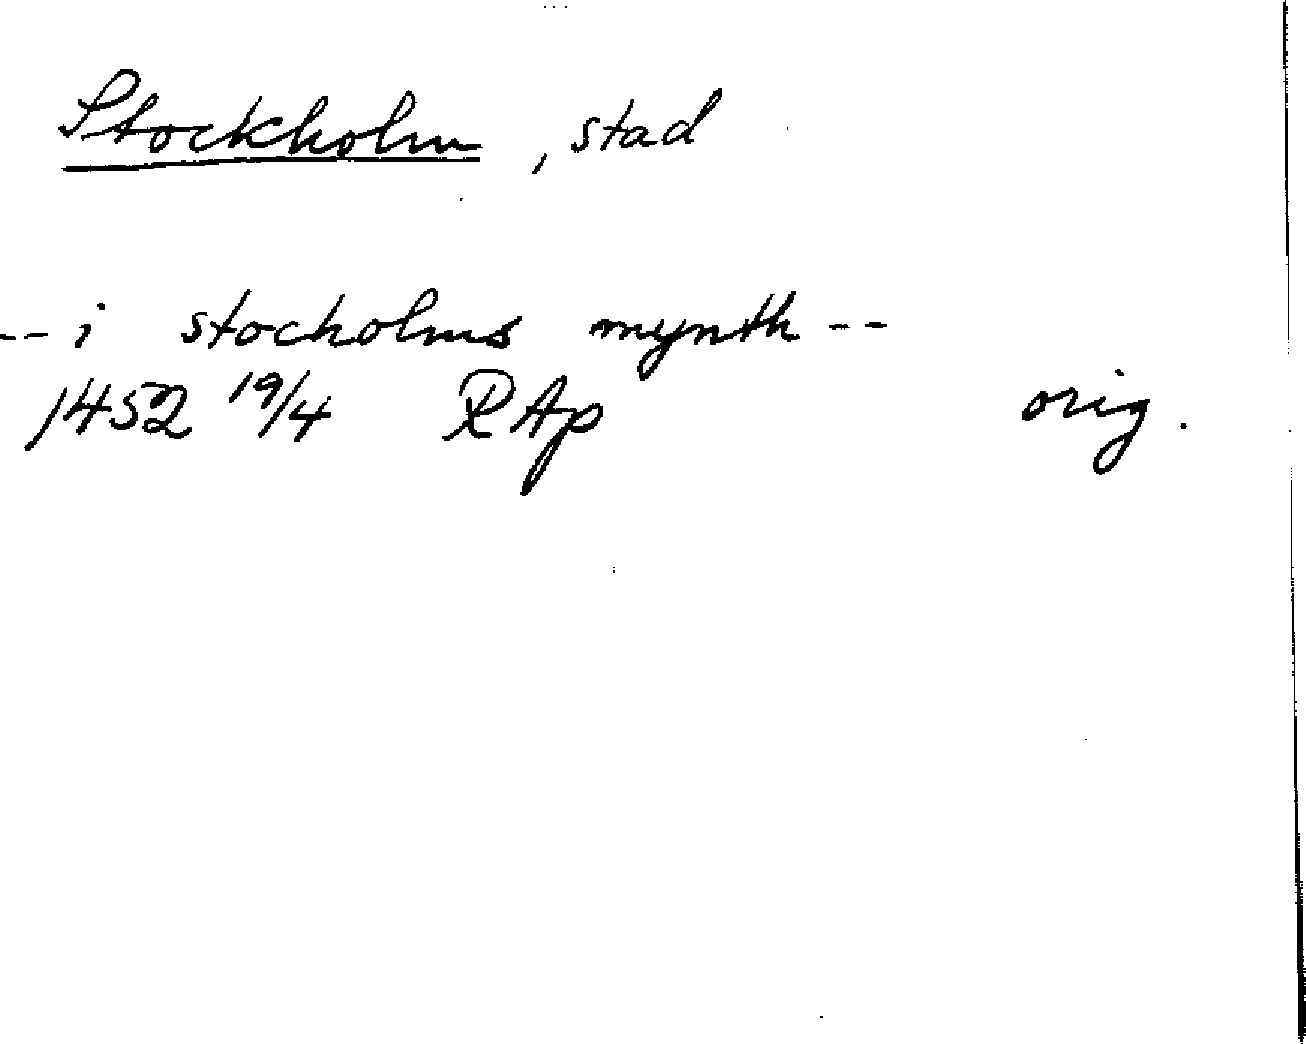 Stockholm, stad
-- i stocholms mynth --
1452 19/4 RAp orig.